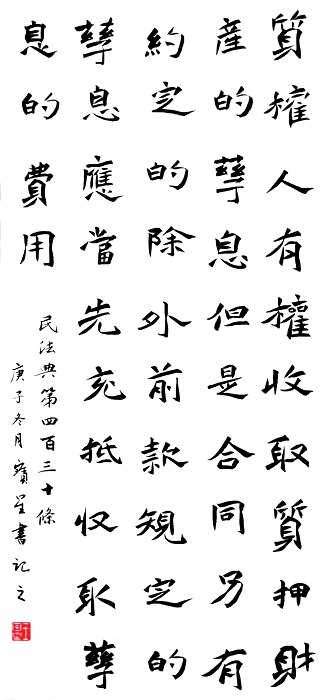 質權人有權收取質押財
產的孳息但是合同另有
約定的除外前款規定的
孳息應當先充抵收取孳
息的費用
民法典第四百三十條
庚子冬月書記之